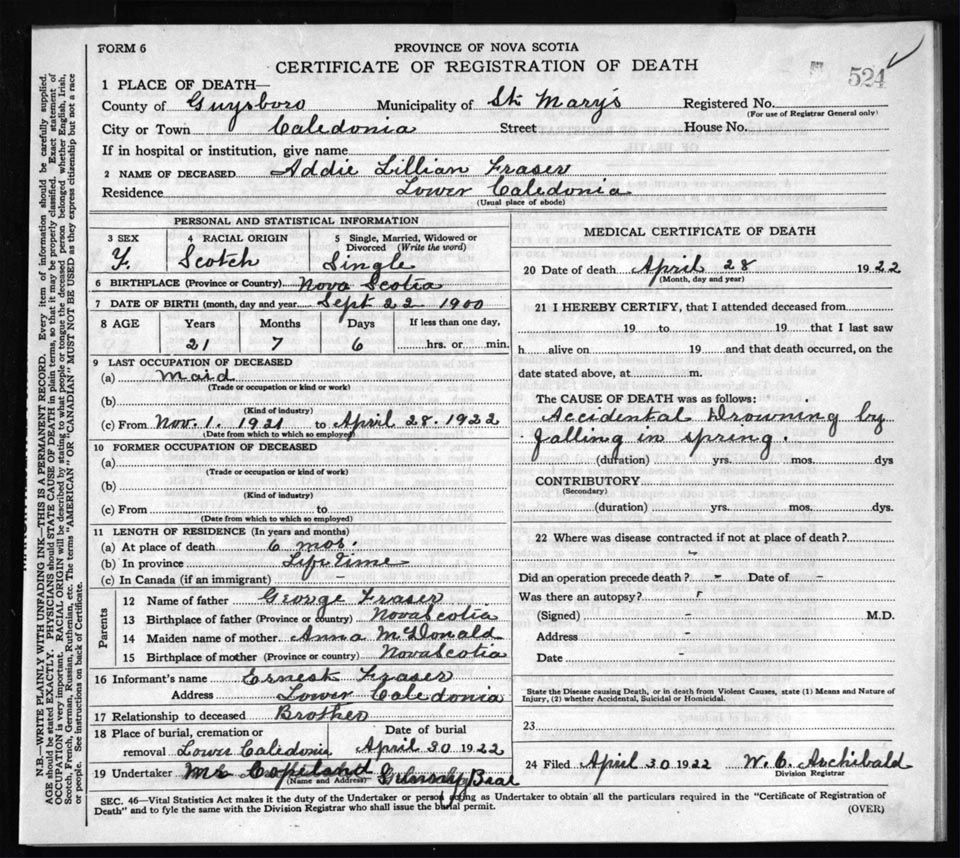 FORM 6
PROVINCE OF NOVA SCOTIA
CERTIFICATE OF REGISTRATION OF DEATH
524
1 PLACE OF DEATH—
County of Guysboro Municipality of St. Mary's Registered No.
(For use of Registrar General only)
City or Town Caledonia Street House No.
If in hospital or institution, give name
2 NAME OF DECEASED Addie Lillian Fraser
Residence Lower Caledonia
(Usual place of abode)
PERSONAL AND STATISTICAL INFORMATION
3 SEX 4 RACIAL ORIGIN 5 Single, Married, Widowed or Divorced (Write the word)
F. Scotch Single
6 BIRTHPLACE (Province or Country) Nova Scotia
7 DATE OF BIRTH (month, day and year) Sept 22 1900
8 AGE Years Months Days If less than one day,
21 7 6 hrs. or min.
9 LAST OCCUPATION OF DECEASED
(a) Maid
(Trade or occupation or kind or work)
(b)
(Kind of industry)
(c) From Nov. 1. 1921 to April 28. 1922
(Date from which to which so employed)
10 FORMER OCCUPATION OF DECEASED
(a)
(Trade or occupation or kind of work)
(b)
(Kind of industry)
(c) From to
(Date from which to which so employed)
11 LENGTH OF RESIDENCE (In years and months)
(a) At place of death 6 mos.
(b) In province Life Time
(c) In Canada (if an immigrant) -
Parents
12 Name of father George Fraser
13 Birthplace of father (Province or country) Nova Scotia
14 Maiden name of mother Anna McDonald
15 Birthplace of mother (Province or country) Nova Scotia
16 Informant's name Ernest Fraser
Address Lower Caledonia
17 Relationship to deceased Brother
18 Place of burial, cremation or removal Lower Caledonia Date of burial April 30 1922
19 Undertaker Copeland
(Name and Address)
MEDICAL CERTIFICATE OF DEATH
20 Date of death April 28 1922
(Month, day and year)
21 I HEREBY CERTIFY, that I attended deceased from
19 to 19 that I last saw
h alive on 19 and that death occurred, on the
date stated above, at m.
The CAUSE OF DEATH was as follows:
Accidental Drowning by
falling in spring.
(duration) yrs. mos. dys
CONTRIBUTORY
(Secondary)
(duration) yrs. mos. dys.
22 Where was disease contracted if not at place of death?
Did an operation precede death? - Date of -
Was there an autopsy?
(Signed) - M.D.
Address -
Date -
State the Disease causing Death, or in death from Violent Causes, state (1) Means and Nature of
Injury, (2) whether Accidental, Suicidal or Homicidal.
23
24 Filed April 30 1922 W. C. Archibald
Division Registrar
SEC. 46—Vital Statistics Act makes it the duty of the Undertaker or person acting as Undertaker to obtain all the particulars required in the "Certificate of Registration of
Death" and to fyle the same with the Division Registrar who shall issue the burial permit.
(OVER)
N.B.—WRITE PLAINLY WITH UNFADING INK—THIS IS A PERMANENT RECORD. Every item of information should be carefully supplied.
AGE should be stated EXACTLY. PHYSICIANS should STATE CAUSE OF DEATH in plain terms, so that it may be properly classified. Exact statement of
OCCUPATION is very important. RACIAL ORIGIN will be described by stating to what people or tongue the deceased person belonged whether English, Irish,
Scotch, French, German, Russian, Ruthenian, etc. The terms "AMERICAN" OR "CANADIAN" MUST NOT BE USED as they express citizenship but not a race
or people. See instructions on back of Certificate.